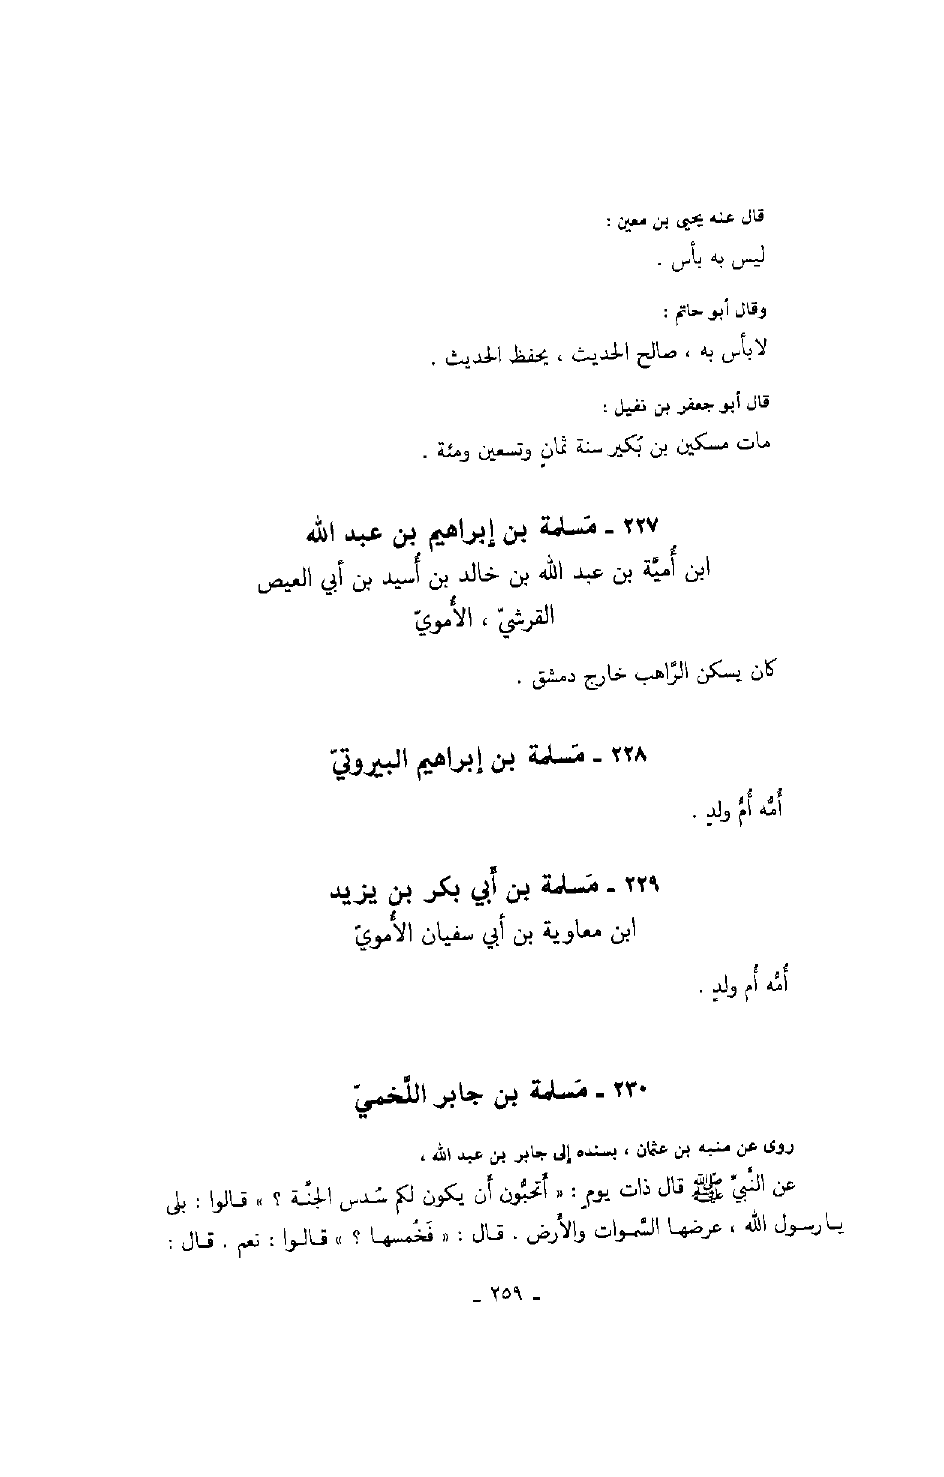 قال عنه يحيى بن معين :
ليس به بأس .
وقال أبو حاتم :
لابأس به ، صالح الحديث ، يحفظ الحديث .
قال أبو جعفر بن نفيل :
مات مسكين بن بُكير سنة ثمانٍ وتسعين ومئة .
٢٢٧ ـ مَسلمة بن إبراهيم بن عبد الله
ابن أُميَّة بن عبد الله بن خالد بن أُسيد بن أبي العيص
القرشيّ ، الأُمويّ
كان يسكن الرَّاهب خارج دمشق .
٢٢٨ ـ مَسلمة بن إبراهيم البيروتيّ
أُمُّه أُمُّ ولدٍ .
٢٢٩ ـ مَسلمة بن أبي بكر بن يزيد
ابن معاوية بن أبي سفيان الأُمويّ
أُمُّه أُم ولدٍ .
٢٣٠ ـ مَسلمة بن جابر اللَّخميّ
روى عن منبه بن عثمان ، بسنده إلى جابر بن عبد الله ،
عن النَّبيّ ﷺ قال ذات يومٍ : « أَتحبُّون أن يكون لكم سُدس الجنَّة ؟ » قـالوا : بلى
يـارسـول الله ، عرضهـا السَّمـوات والأرض . قـال : « فَخُمسهـا ؟ » قـالـوا : نعم . قـال :
ـ ٢٥٩ ـ